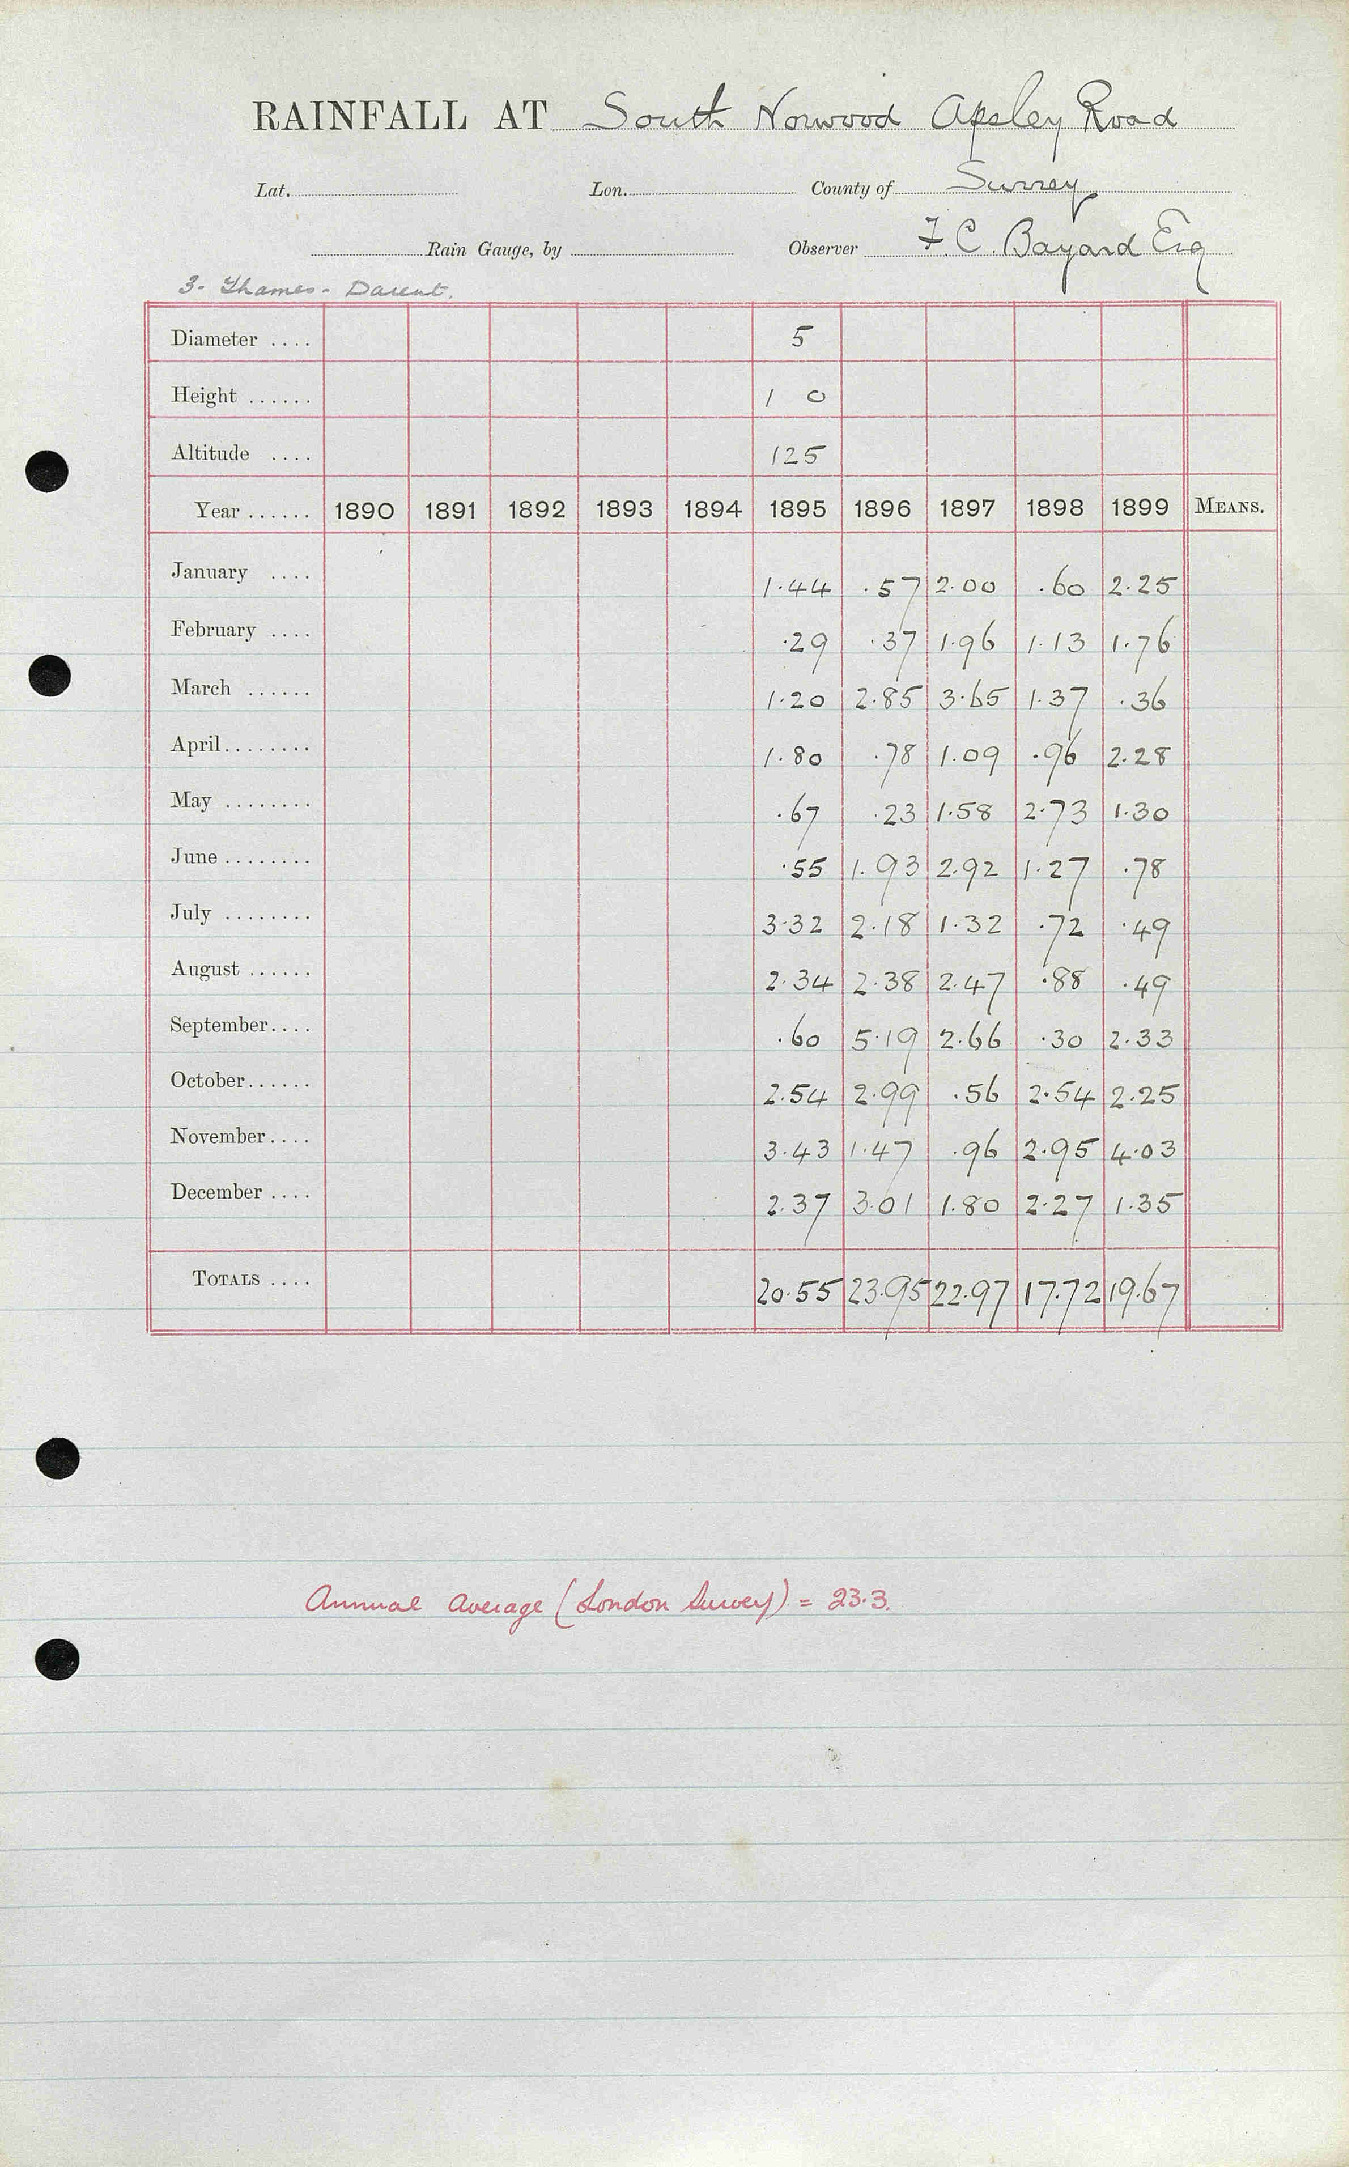 RAINFALL AT South Norwood Apsley Road
Lat. Lon. County of Surrey
Rain Gauge, by Observer F. C. Bayard Esq
3- Thames - Darent.
Diameter .... 5
Height ...... 1 0
Altitude .... 125
Year ...... 1890 1891 1892 1893 1894 1895 1896 1897 1898 1899 MEANS.
January .... 1.44 .57 2.00 .60 2.25
February .... .29 .37 1.96 1.13 1.76
March ...... 1.20 2.85 3.65 1.37 .36
April........ 1.80 .78 1.09 .96 2.28
May ........ .67 .23 1.58 2.73 1.30
June ........ .55 1.93 2.92 1.27 .78
July ........ 3.32 2.18 1.32 .72 .49
August ...... 2.34 2.38 2.47 .88 .49
September.... .60 5.19 2.66 .30 2.33
October...... 2.54 2.99 .56 2.54 2.25
November.... 3.43 1.47 .96 2.95 4.03
December .... 2.37 3.01 1.80 2.27 1.35
TOTALS .... 20.55 23.95 22.97 17.72 19.67
Annual average (London Survey) = 23.3.